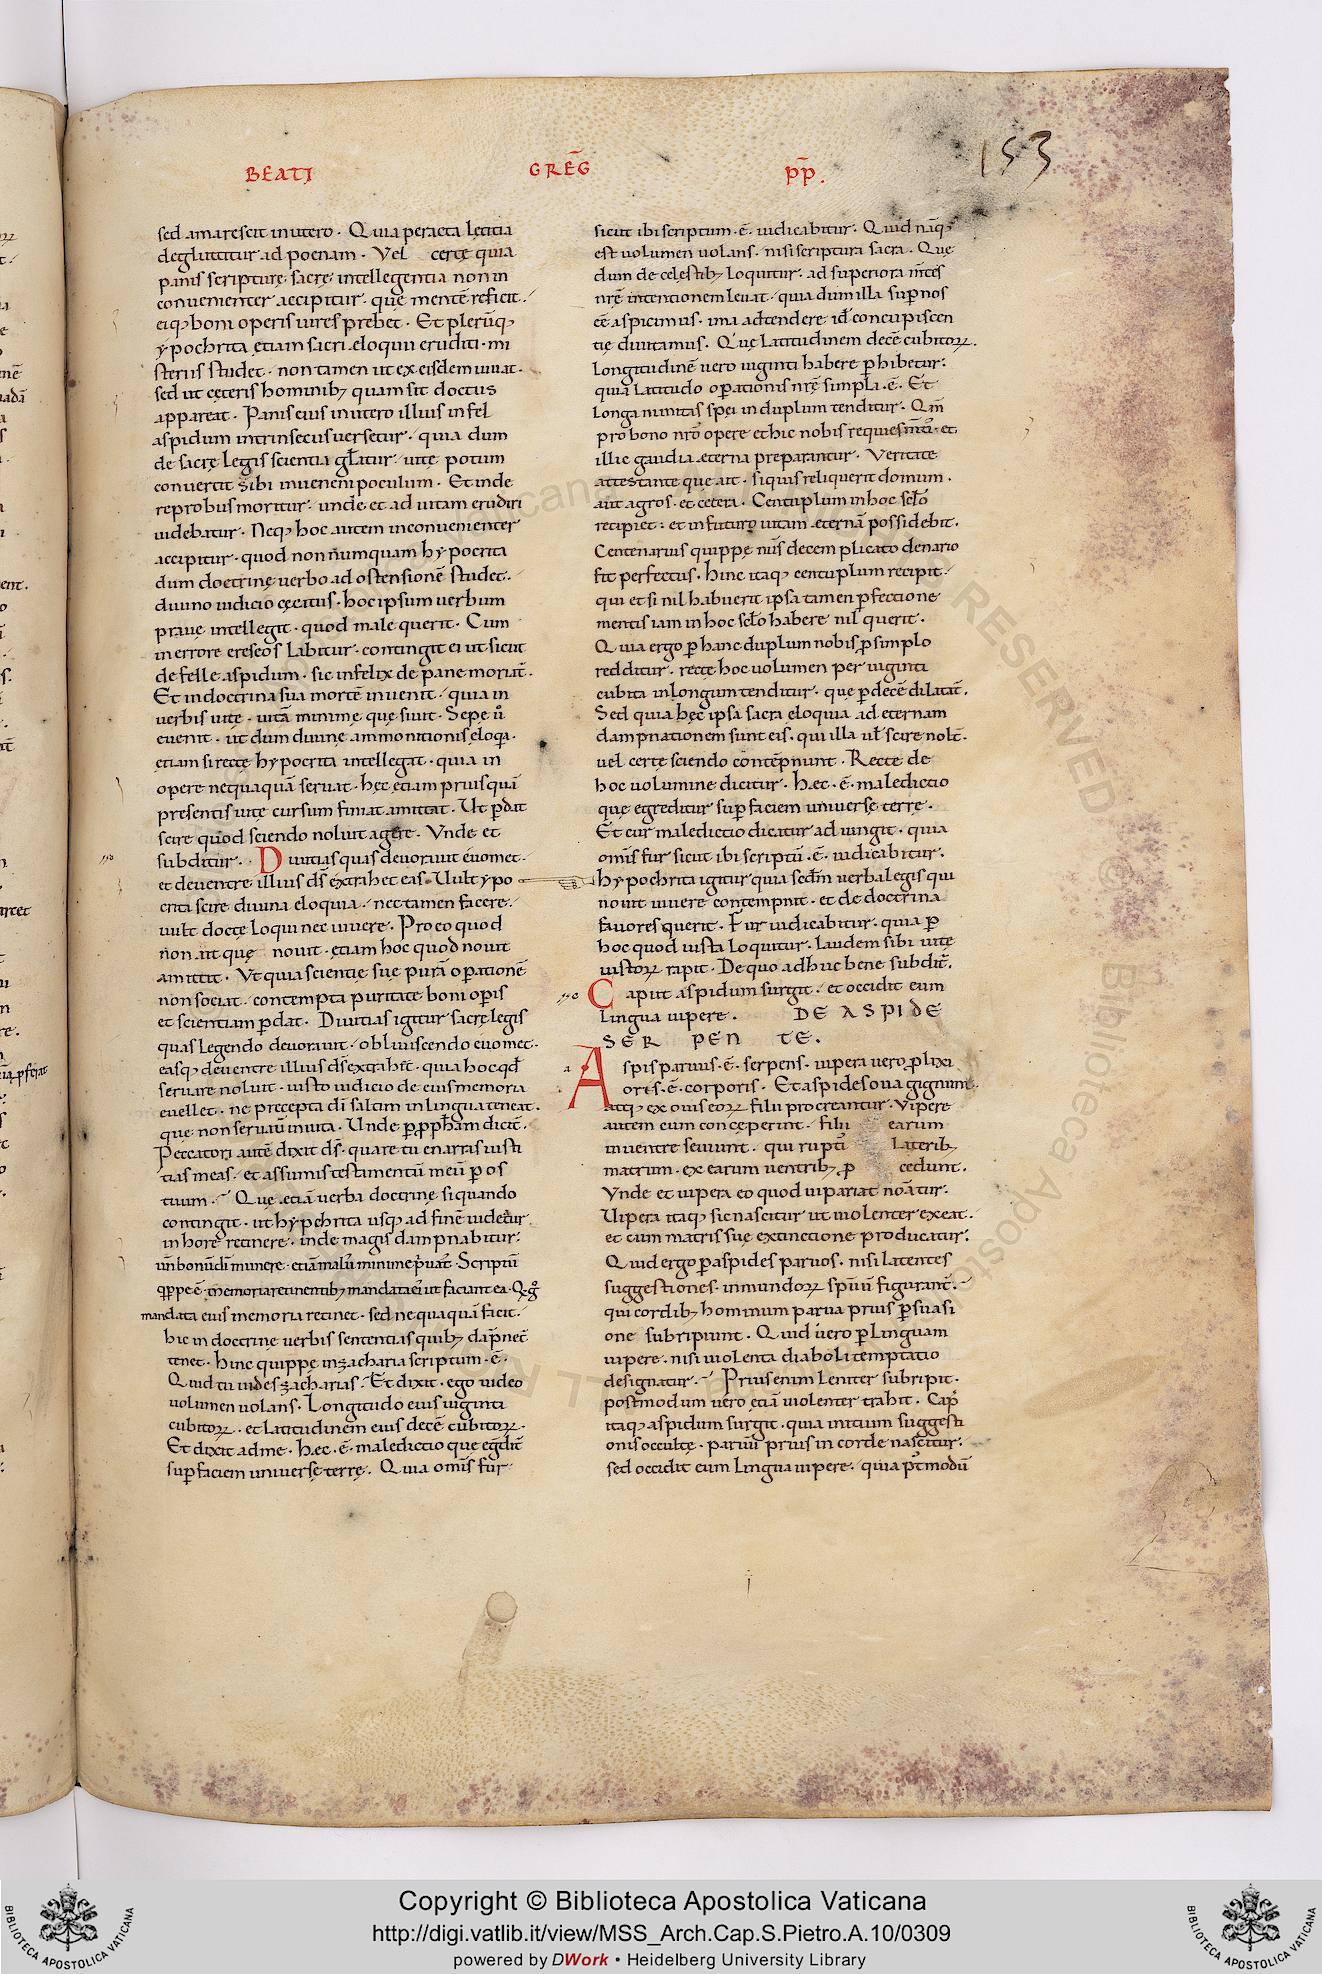 BEATI GREḠ p̄p̄.
153
sed amarescit in utero · Quia peracta lętitia
deglutitur ad poenam · Vel certę quia
panis scripturę sacrę intellegentia non in
conuenienter accipitur · quę mentē reficit ·
eiq; boni operis uires prebet · Et plerūq;
ypochrita ętiam sacri eloquii eruditi · mi
steriis studet · non tamen ut ex eisdem uiuat ·
sed ut cęteris hominib; quam sit doctus
appareat · Panis eius in utero illius in fel
aspidum intrinsecus uersetur · quia dum
de sacrę legis scientia gl̄atur · uitę potum
conuertit sibi in ueneni poculum · Et inde
reprobus moritur · unde et ad uitam erudiri
uidebatur · Neq; hoc autem inconuenienter
accipitur · quod non numquam hypocrita
dum doctrinę uerbo ad ostensionē studet ·
diuino iudicio cęcatus · hoc ipsum uerbum
prauę intellegit · quod male querit · Cum
in errore ereseos labitur · contingit ei ut sicut
de felle aspidum · sic infelix de pane moriat̄ ·
Et in doctrina sua mortē inuenit · quia in
uerbis uitę · uitā minimę quęsiuit · Sepe ū
euenit · ut dum diuinę ammonitionis ęloq̄a ·
ętiam si rectę hypocrita intellegat · quia in
opere nequaquā seruat · hęc ętiam priusquā
presentis uitę cursum finiat amittat · Ut p̄dat
scire quod sciendo noluit agere · Vnde et
subditur · Diuitias quas deuorauit euomet ·
et de uentre illius ds̄ extrahet eas · Uult ypo
crita scire diuina eloquia · nec tamen facere ·
uult doctę loqui nec uiuere · Pro eo quod
non ait quę nouit · etiam hoc quod nouit
amittit · Vt quia scientię suę purā op̄ationē
non sociat · contempta puritate boni op̄is
et scientiam p̄dat · Diuitias igitur sacrę legis
quas legendo deuorauit · obliuiscendo euomet ·
easq; de uentre illius ds̄ extrahet̄ · quia hoc qđ
seruare noluit · iusto iudicio de eius memoria
euellet · ne precepta dī saltim in lingua teneat ·
que non seruauit in uita · Unde p̄ p̄p̄ham dicit̄ ·
Peccatori autē dixit ds̄ · quare tu enarras iusti
tias meas · et assumis testamentū meū p̄ os
tuum · Quę etiā uerba doctrinę si quando
contingit · ut hypchrita usq; ad finē uidetur
in hore retinere · inde magis dampnabitur ·
Scriptū
mandata eius memoria retinet · sed nequaquā facit ·
hic in doctrinę uerbis sententias quib; dāpnet̄
tenet · hinc quippe in zacharia scriptum · ē ·
Quid tu uides zacharias · Et dixit · ego uideo
uolumen uolans · Longitudo eius uiginti
cubitoꝝ · et latitudinem eius decē cubitoꝝ ·
Et dixit ad me · hęc · ē · maledictio que eg̃dit̄
sup̄ faciem uniuersę terrę · Quia omīs fur
sicut ibi scriptum · ē · iudicabitur · Quid nāq;
est uolumen uolans · nisi scriptura sacra · Quę
dum de celestib; loquitur · ad superiora m̄tes
nr̄ę intentionem leuat · quia dum illa sup̄ nos
eē aspicimus · ima adtendere id̄ concupiscen
tię diuitamus · Quę latitudinem decē cubitoꝝ ·
Longitudinē uero uiginti habere p̄hibetur ·
quia latitudo op̄ationis nr̄ę simpla · ē · Et
longanimitas spei in duplum tenditur · Qm̄
pro bono nr̄o opere et hic nobis requies
illic gaudia ęterna preparantur · Veritate
attestante que ait · si quis reliquerit domum ·
aut agros · et cetera · Centuplum in hoc sclo
recipiet : et in futuro uitam ęternā possidebit ·
Centenarius quippę nūs decem plicato denario
fit perfectus · hinc itaq; centuplum recipit ·
qui et si nil habuerit ipsa tamen p̄fectione
mentis iam in hoc sclo habere nil querit ·
Quia ergo p̄ hanc duplum nobis p̄ simplo
redditur · rectę hoc uolumen per uiginti
cubita in longum tenditur · quę p̄ decē dilatat̄ ·
Sed quia hęc ipsa sacra eloquia ad eternam
dampnationem sunt eis · qui illa ut̄ scire nolt̄ ·
uel certe sciendo contēpnunt · Recte de
hoc uolumine dicitur · hęc · ē · maledictio
quę egreditur sup̄ faciem uniuersę terrę ·
Et cur maledictio dicatur ad iungit · quia
omīs fur sicut ibi scriptū · ē · iudicabitur ·
hypochrita igitur quia scdm̄ uerba legis qui
nouit uiuere contempnit · et de doctrina
fauores querit · Fur iudicabitur · quia p̄
hoc quod iusta loquitur · laudem sibi uitę
iustoꝝ rapit · De quo adhuc bene subdit̄ ·
Caput aspidum surgit · et occidit eum
lingua uipere · DE ASPIDE
SER PEN TE ·
Aspis paruus · ē · serpens · uipera uero p̄lixi
oris · ē · corporis · Et aspides oua gignunt ·
atq; ex ouis eoꝝ filii procreantur · Vipere
autem cum conceperint · filii earum
in uentre seuiunt · qui rupti laterib;
matrum · ex earum uentrib; p̄ cedunt ·
Vnde et uipera eo quod ui pariat noātur ·
Uipera itaq; sic nascitur ut uiolenter exeat ·
et cum matris suę extinctione producatur ·
Quid ergo p̄ aspides paruos · nisi latentes
suggestiones · inmundoꝝ spūū figurant̄ ·
qui cordib; hominum parua prius p̄suasi
one subripiunt · Quid uero p̄ linguam
uipere · nisi uiolenta diaboli temptatio
designatur · Prius enim leniter subripit ·
postmodum uero ętiā uiolenter trahit · Cap̄
itaq; aspidum surgit · quia initium suggesti
onis occultę · paruū prius in corde nascitur ·
sed occidit eum lingua uipere · quia p̄tmodū
Copyright © Biblioteca Apostolica Vaticana
http://digi.vatlib.it/view/MSS_Arch.Cap.S.Pietro.A.10/0309
powered by DWork • Heidelberg University Library
BIBLIOTECA APOSTOLICA VATICANA
BIBLIOTECA APOSTOLICA VATICANA